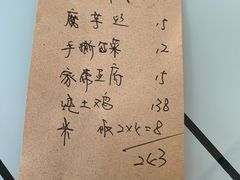 腐竿丝 15
手撕包菜 12
家常豆腐 15
炖土鸡 138
米饭2×4=8
263